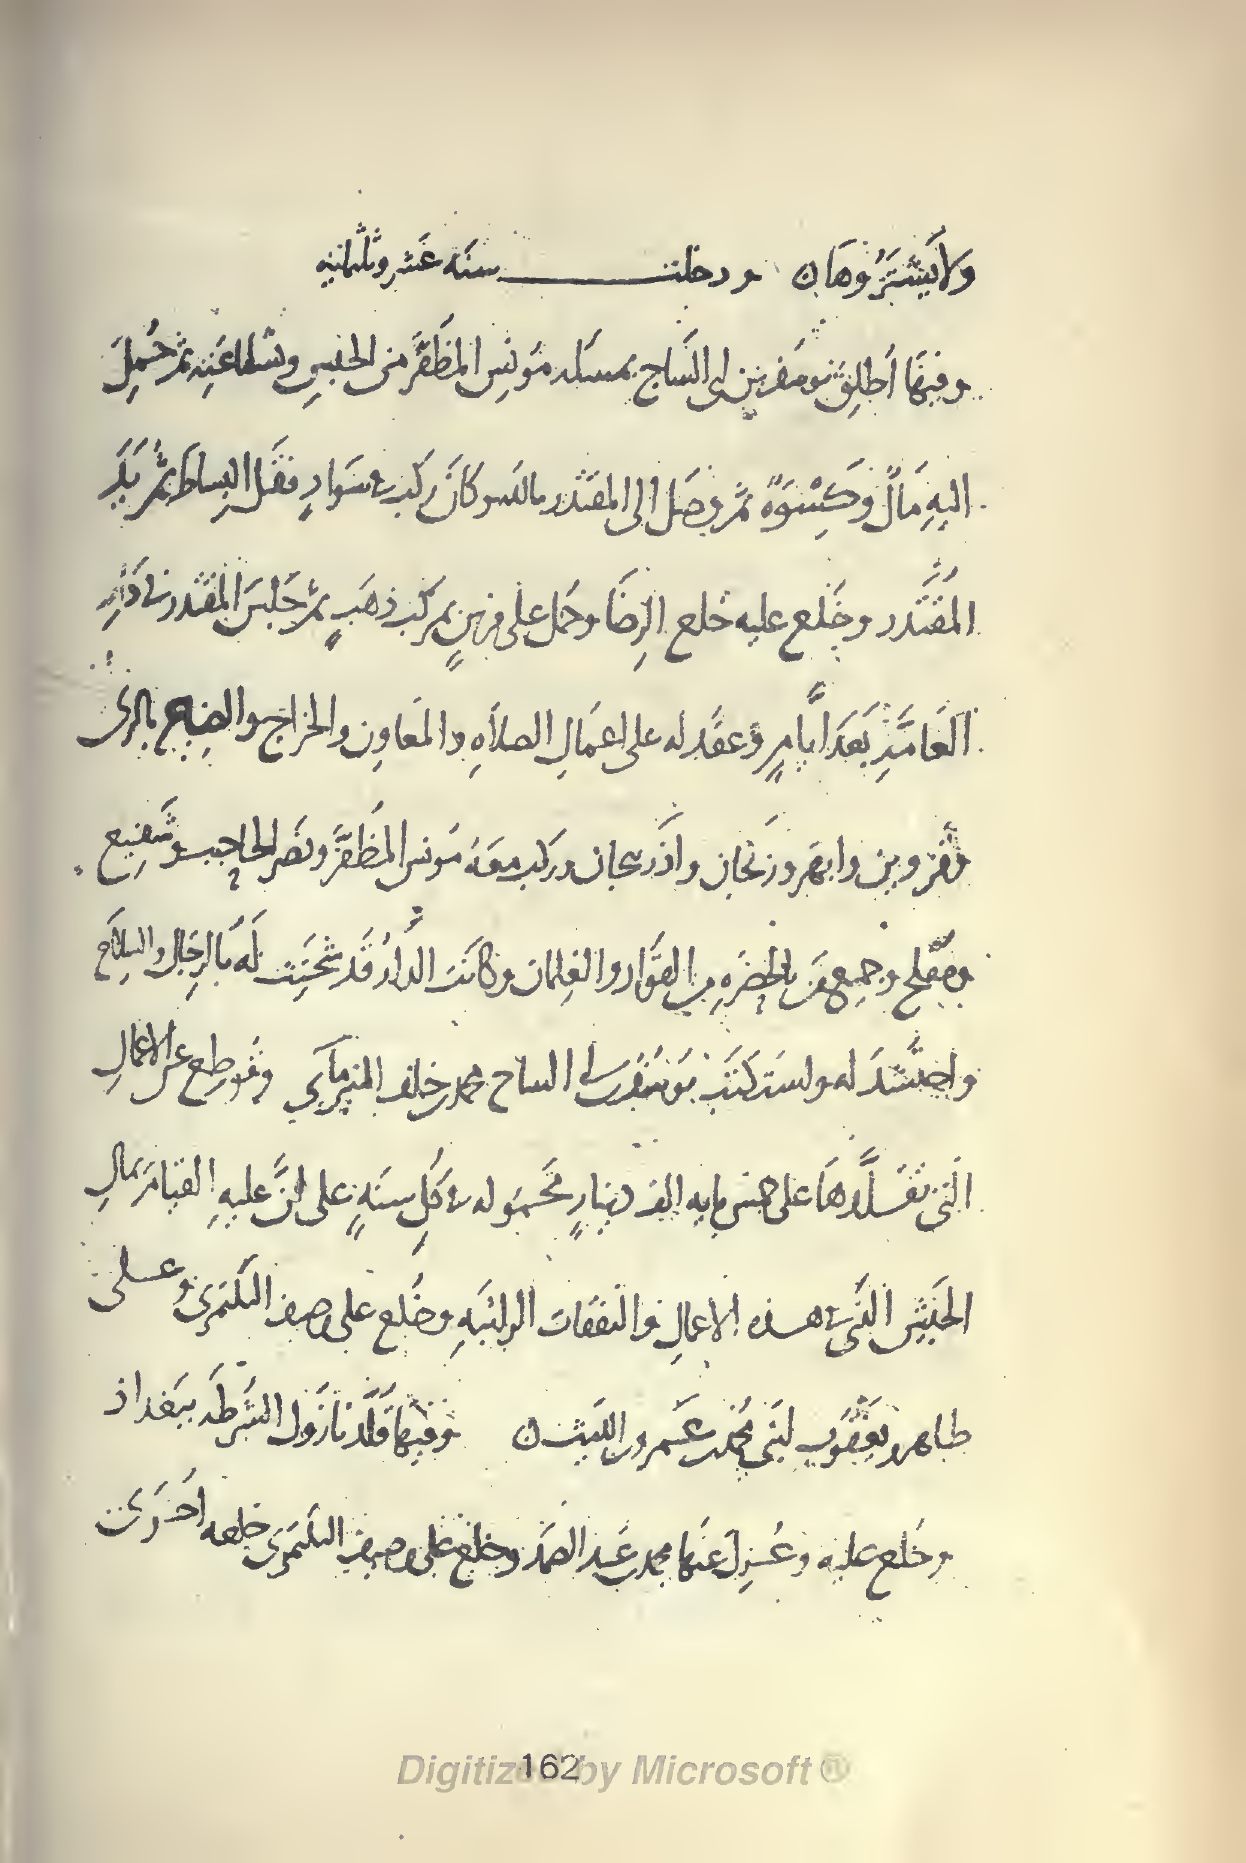 ولا يشتروها ن ودخلت سنه عشر وثلثمائيه
وفيها أطلق يوسف بن ابى الساج بمسئله مونس المظفر من الحبس وشفاعته ثم حمل
اليه مال وكسوة ثم وصل الى المقتدر بالله كان ركب فى سواد فقبل البساط ثم يد
المقتدر وخلع عليه خلع الرضا وحمل على فرس بمركب ذهب ثم جلس المقتدر فى دار
العامة بعد أيام وعقد له على اعمال الصلاه والمعاون والخراج والضياع بالرى
وقزوين وابهر وزنجان واذربيجان وركب معه مونس المظفر ونصر الحاجب وشفيع
ومفلح وجميع من بالحضره من القواد والغلمان وكانت الدار قد شحنت له بالرجال والسلاح
واحتشد له واستكتب يوسف بن ابى الساج محمد بن خلف النيرمانى وقوطع عن الاعمال
التى تقلدها على خمس مايه الف دينار محموله فى كل سنة على أن عليه القيام بمال
الجيش الذى فى هذه الاعمال والنفقات الراتبه وخلع على وصيف البكتمرى وعلى
طاهر ويعقوب ابنى محمد بن عمرو بن الليث ن وفيها قلد نازوك الشرطة ببغداذ
وخلع عليه وعزل عنها محمد بن عبد الصمد وخلع على وصيف البكتمرى خلعه اخرى
162
Digitized by Microsoft ®